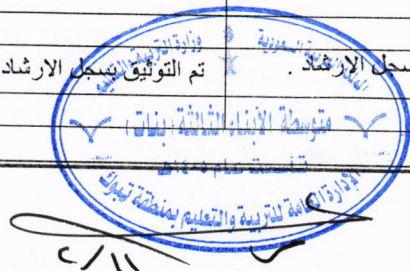 سجل الارشاد . تم التوثيق بسجل الارشاد
المملكة العربية السعودية وزارة التربية والتعليم
متوسطة الأبناء الثالثة (بنات)
تأسست عام ١٤٠٥هـ
الإدارة العامة للتربية والتعليم بمنطقة تبوك